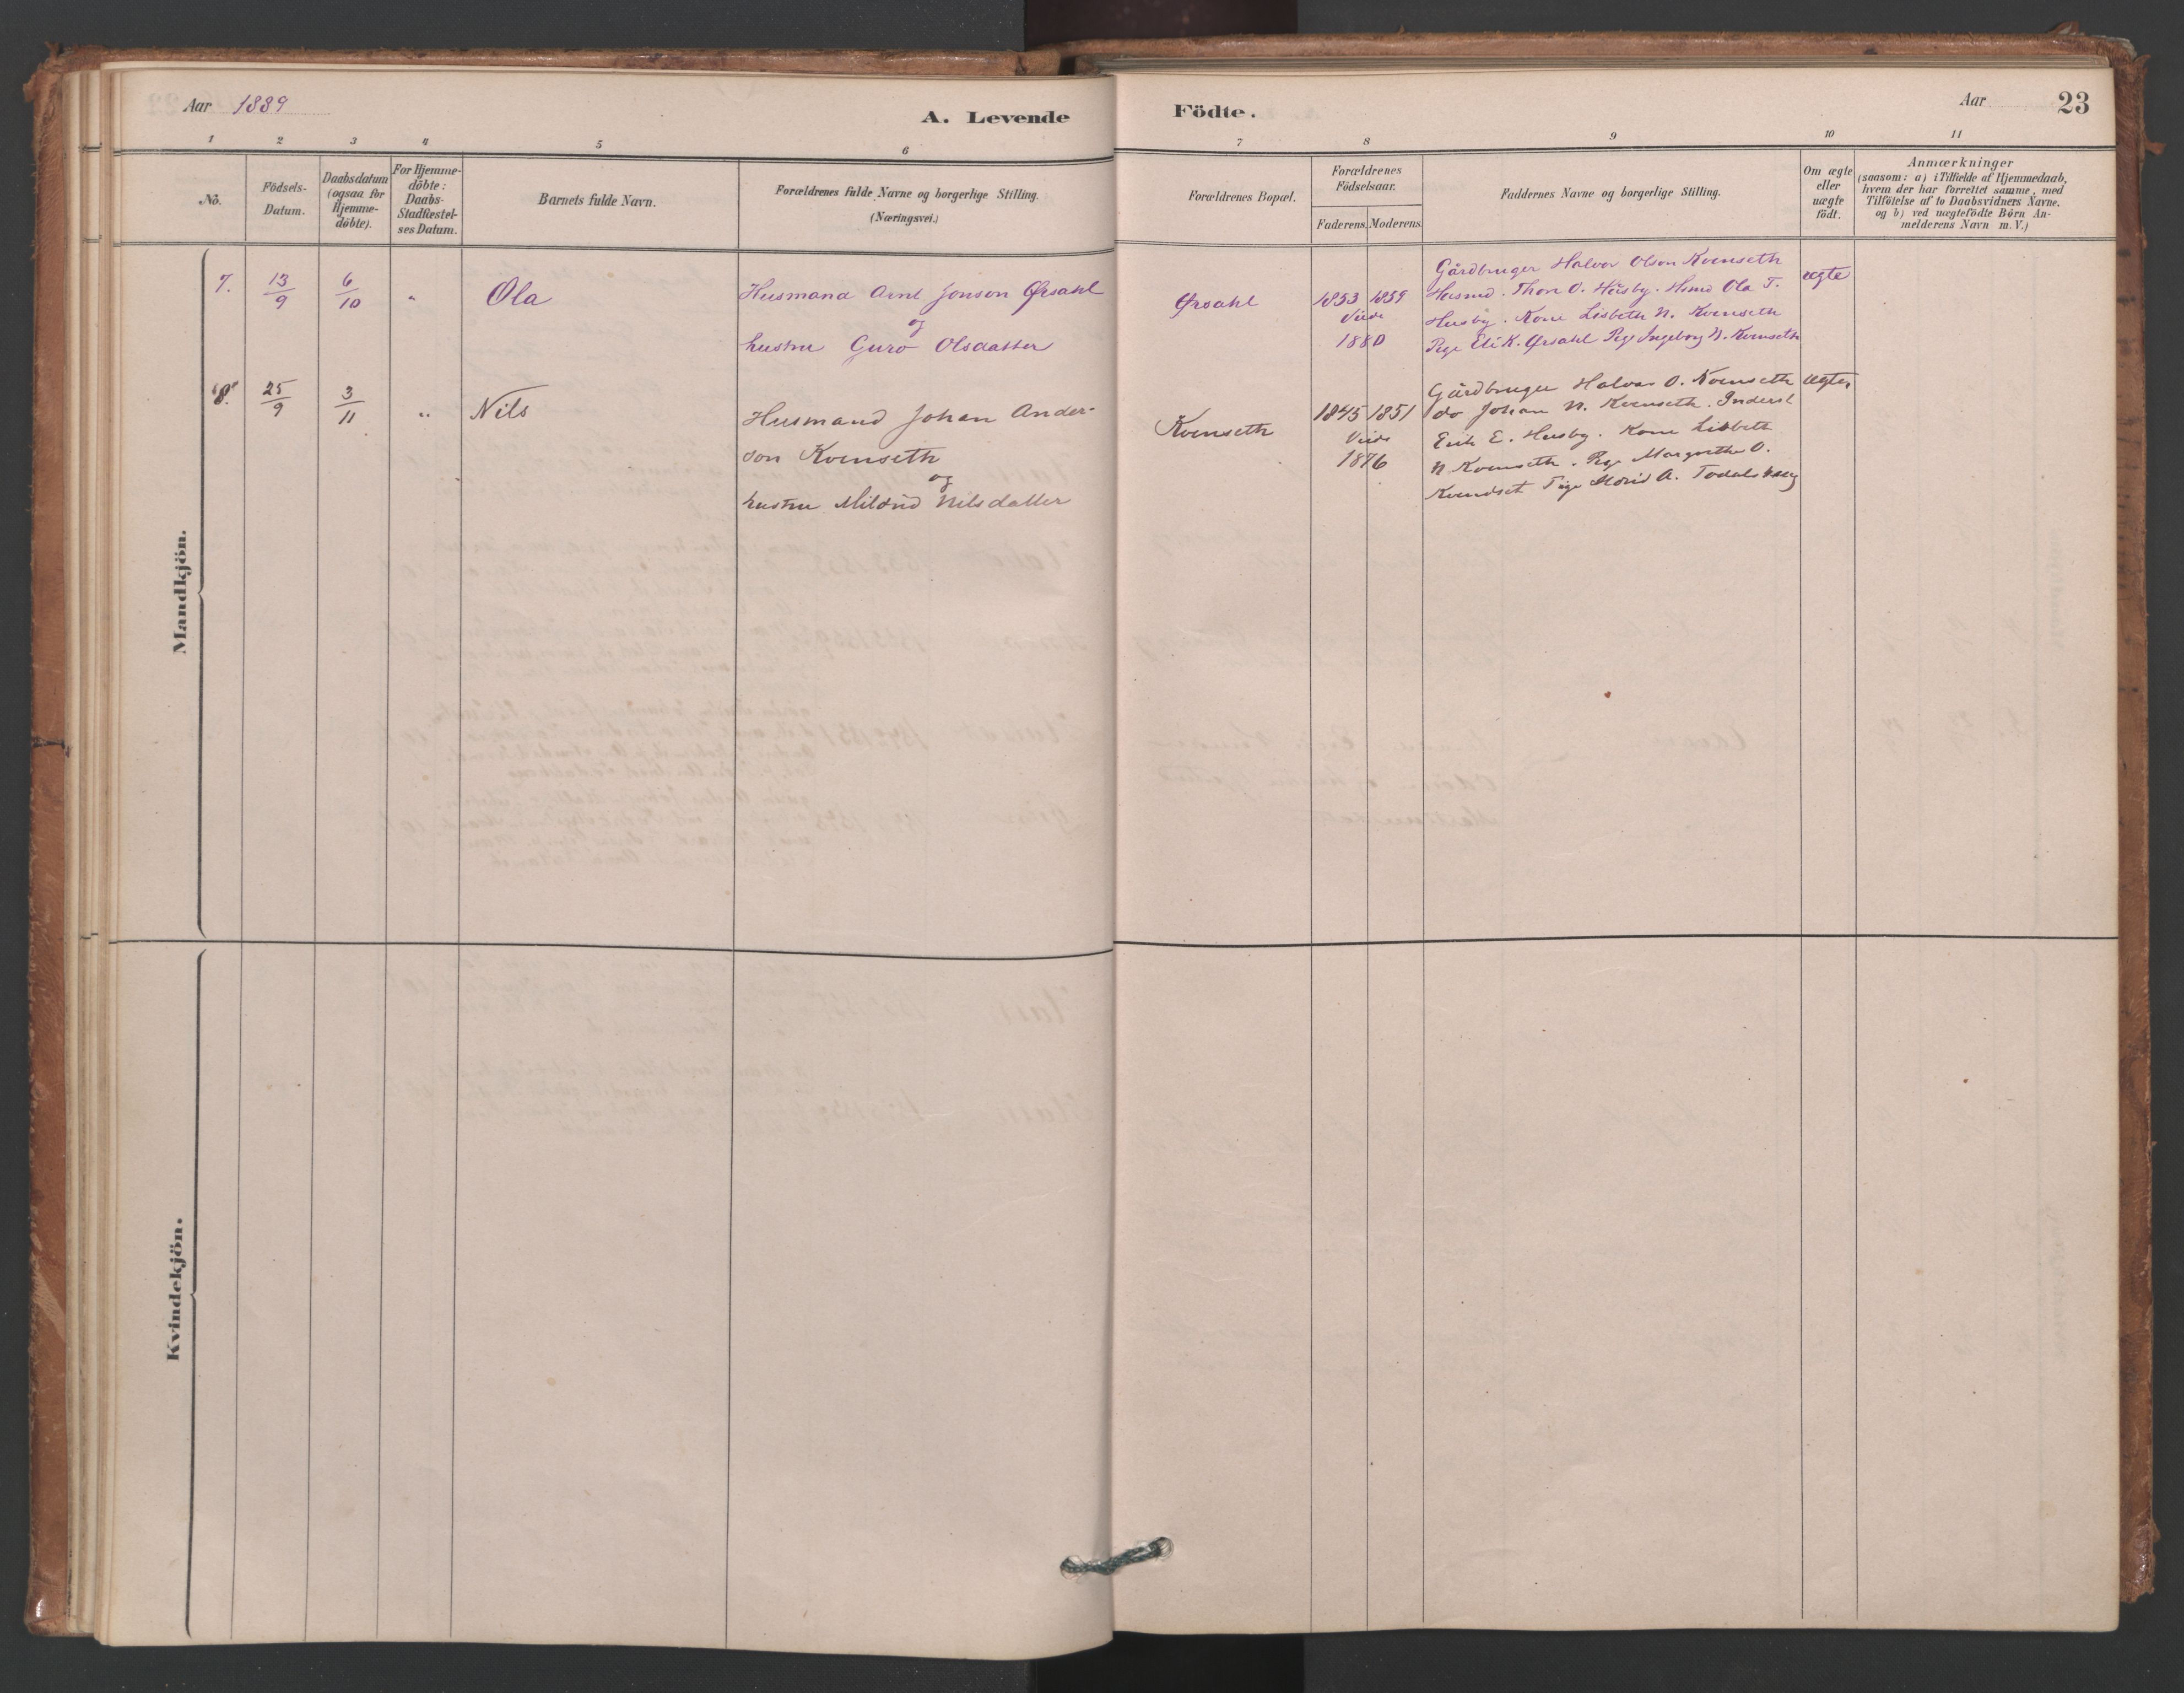 Aar 1889
A. Levende Födte.
Aar 23
1 2 3 4 5 6 7 8 9 10 11
No.
Födsels-
Datum.
Daabsdatum
(ogsaa for
Hjemme-
döbte).
For Hjemme-
döbte:
Daabs-
Stadfæstel-
ses Datum.
Barnets fulde Navn.
Forældrenes fulde Navne og borgerlige Stilling.
(Næringsvei.)
Forældrenes Bopæl.
Forældrenes
Födselsaar.
Faderens. Moderens.
Faddernes Navne og borgerlige Stilling.
Om ægte
eller
uægte
födt.
Anmærkninger
(saasom: a) i Tilfælde af Hjemmedaab,
hvem der har forrettet samme, med
Tilföielse af to Daabsvidners Navne,
og b) ved uægtefödte Börn An-
melderens Navn m. V.)
Mandkjön.
7. 13/9 6/10 " Ola
Husmand Arnt Jonson Ørsahl
og
hustru Guro Olsdatter
Ørsahl
1853 1859
Viede
1880
Gårdbruger Halvor Olson Kvenseth
Husmd. Thore O. Husby. Hsmd Ola T.
Husby. Kone Lisbeth N. Kvenseth
Pige Eli K. Ørsahl Pige Ingeborg N. Kvenseth
ægte
8. 25/9 3/11 " Nils
Husmand Johan Ander-
son Kvenseth
og
hustru Mildrid Nilsdatter
Kvenseth
1845 1851
Viede
1876
Gårdbruger Halvor O. Kvenseth
do Johan N. Kvenseth. Inderst
Erik E. Husby. Kone Lisbeth
N Kvenseth. Pige Margrethe O.
Kvendset Pige A. Todalshaug
ægte
Kvindekjön.